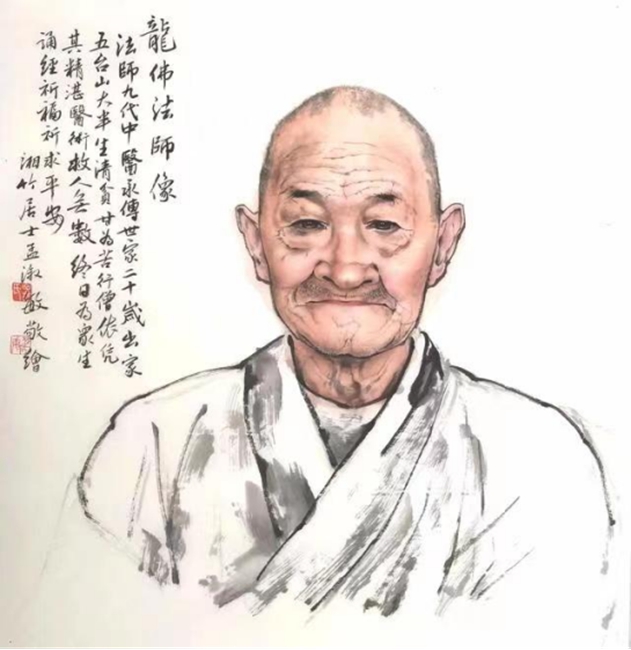 龍佛法師像
法師九代中醫承傳世家二十歲出家
五台山大半生清貧甘為苦行僧依凭
其精湛醫術救人无數終日為眾生
誦經祈福祈求平安
湘竹居士孟淑敏敬繪